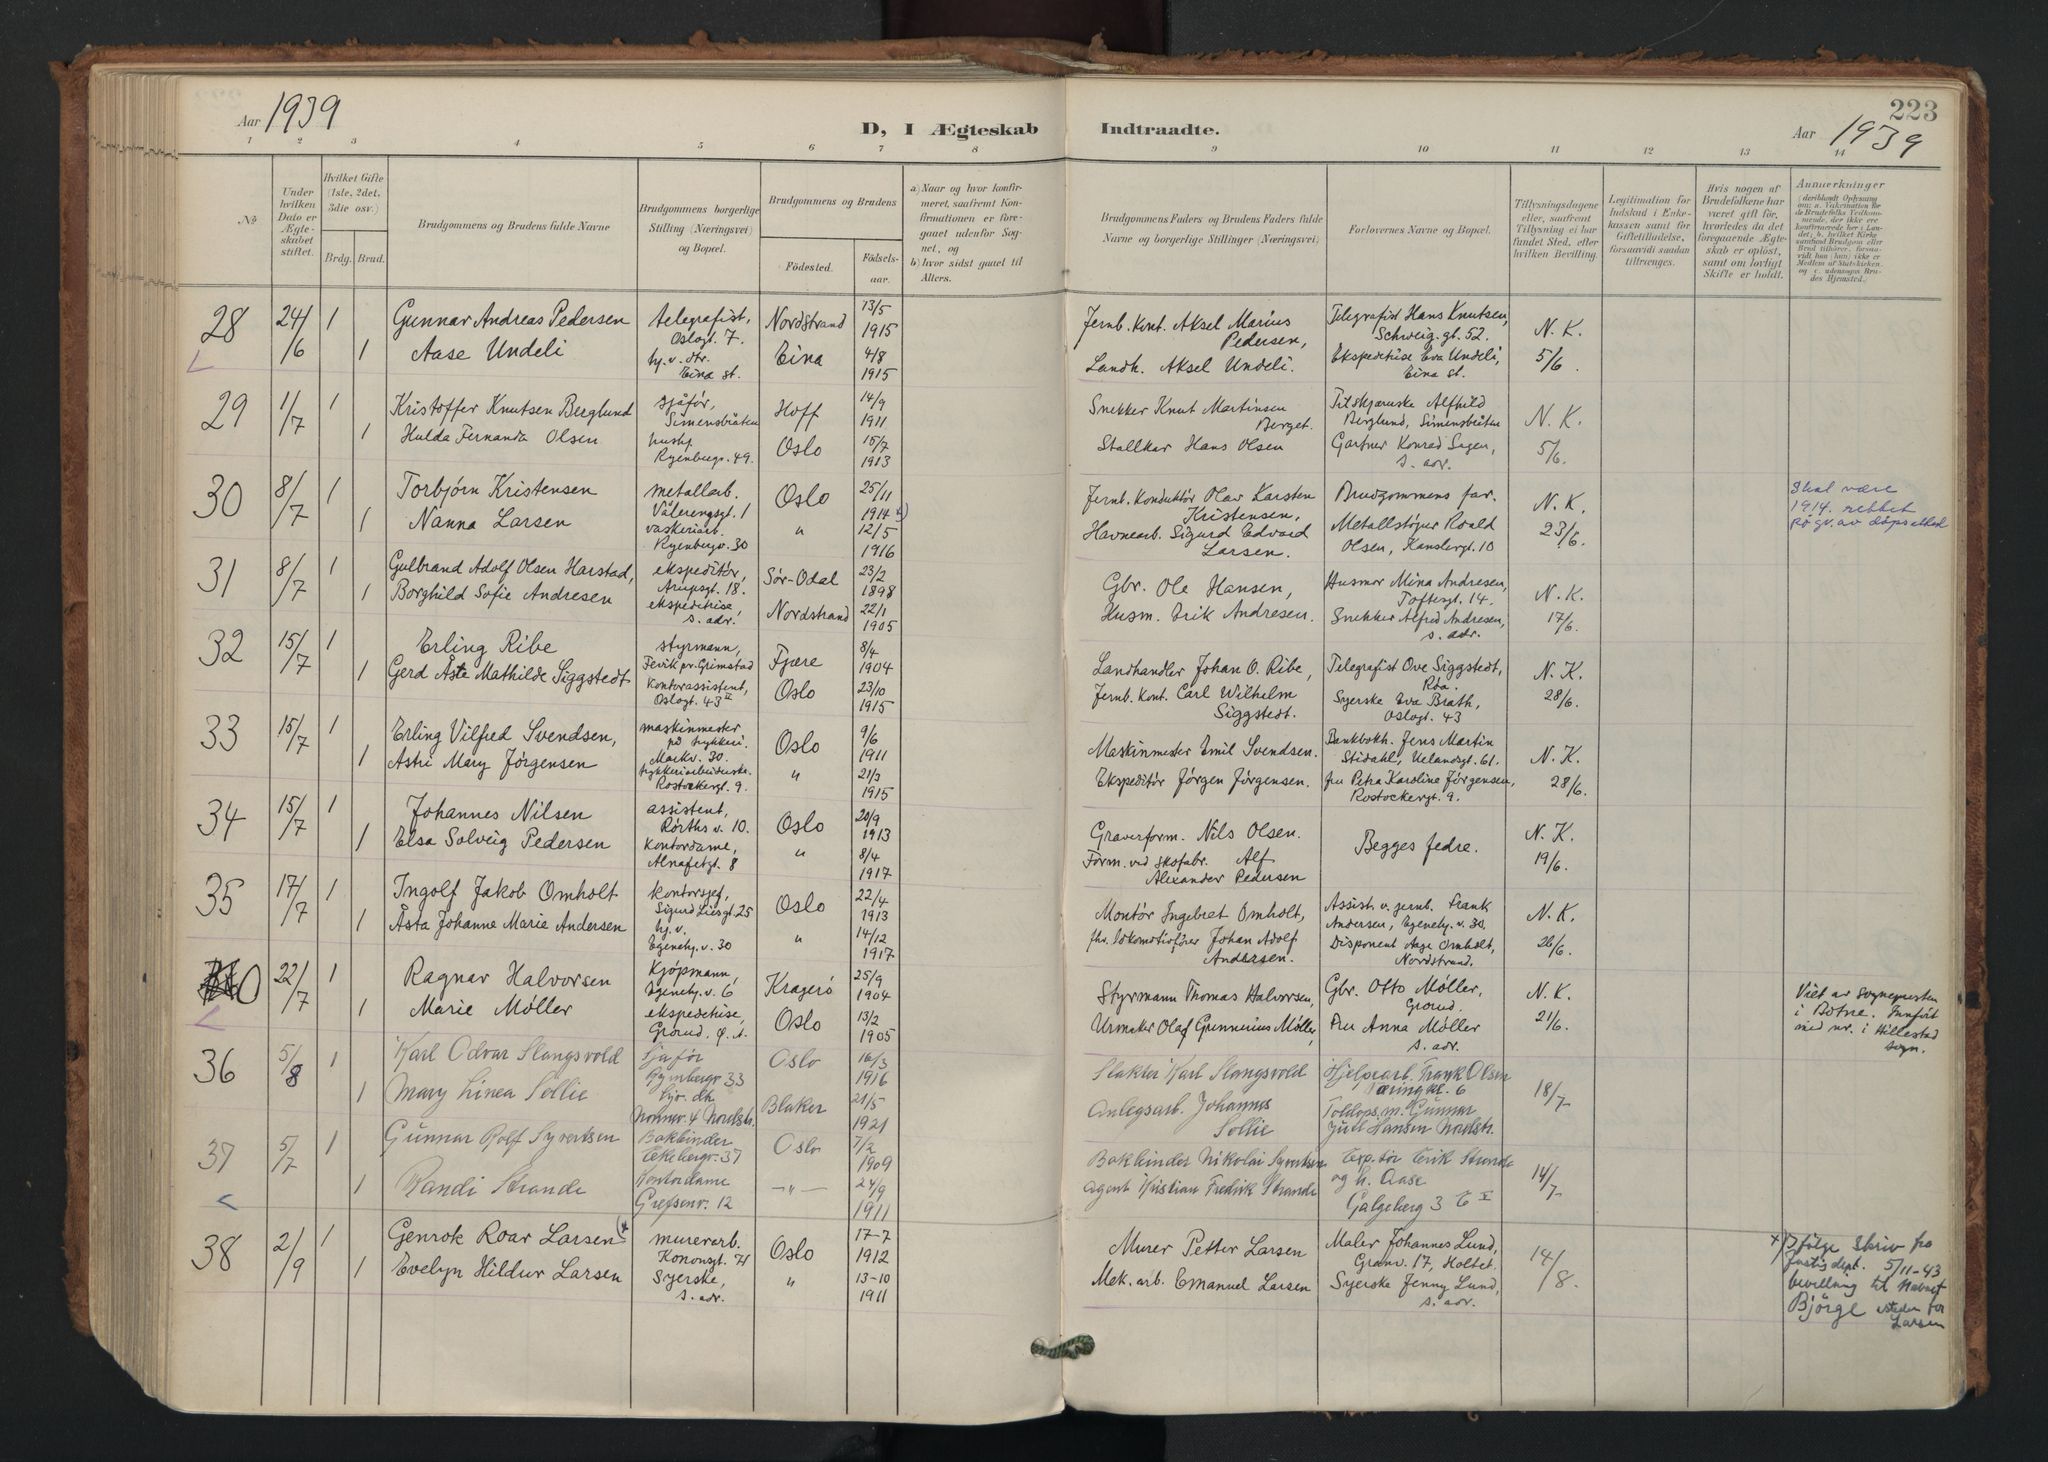 223
Aar 1939
D, I Ægteskab Indtraadte.
Aar 1939
1 2 3 4 5 6 7 8 9 10 11 12 13 14
No
Under hvilken Dato er Ægteskabet stiftet.
Hvilket Gifte (1ste, 2det, 3die osv.)
Brdg. Brud.
Brudgommens og Brudens fulde Navne
Brudgommens borgerlige Stilling (Næringsvei) og Bopæl.
Brudgommens og Brudens
Fødested. Fødselsaar.
a) Naar og hvor konfirmeret, saafremt Konfirmationen er foregaaet udenfor Sognet, og
b) hvor sidst gaaet til Alters.
Brudgommens Faders og Brudens Faders fulde Navne og borgerlige Stillinger (Næringsvei)
Forlovernes Navne og Bopæl.
Tillysningsdagene eller, saafremt Tillysning ei har fundet Sted, efter hvilken Bevilling.
Legitimation for Indskud i Enkekassen samt for Giftetilladelse, forsaavidt saadan tiltrænges.
Hvis nogen af Brudefolkene har været gift før, hvorledes da det foregaaende Ægteskab er opløst, samt om lovligt Skifte er holdt.
Anmerkninger
28 24/6 1 Gunnar Andreas Pedersen telegrafist, Oslogt. 7. Nordstrand 13/5 1915 Jernb. Kont. Aksel Marius Pedersen, Telegrafist Hans Knutsen, Schweig. gt. 52. N. K.
1 Aase Undeli hj. v. dtr. Eina st. Eina 4/8 1915 Landh. Aksel Undeli. Ekspeditrise Eva Undeli, Eina st. 5/6.
29 1/7 1 Kristoffer Knutsen Berglund sjåfór, Simensbråten Hoff 14/9 1911 Snekker Knut Martinsen Berget. Alfhild Berglund, Simensbråten N. K.
1 Hulda Fernanda Olsen hushj. Ryenbergv. 49. Oslo 15/7 1913 Stallkar Hans Olsen Gartner Konrad Sagen, s. adr. 5/6.
30 8/7 1 Torbjørn Kristensen metallarb. Vålerenggt. 1 Oslo 25/11 1914 Jernb. Konduktör Olav Karsten Kristensen, Brudgommens far. N. K. Skal være 1914. rettet på gr. av dåpsattest
1 Nanna Larsen vaskeriarb. Ryenbergv. 30 " 12/5 1916 Havnearb. Sigurd Edvard Larsen. Metallstøper Roald Olsen, Kanslergt. 10 23/6.
31 8/7 1 Gulbrand Adolf Olsen Harstad, ekspeditör, Arupsgt. 18. Sør-Odal 23/2 1898 Gbr. Ole Hansen, Husmor Mina Andresen, Toftesgt. 14. N. K.
1 Borghild Sofie Andresen ekspeditrise, s. adr. Nordstrand 22/1 1905 Husm. Erik Andresen. Snekker Alfred Andresen, s. adr. 17/6.
32 15/7 1 Erling Ribe styrmann, Fevik pr. Grimstad Fjære 8/4 1904 Landhandler Johan O. Ribe, Telegrafist Ove Siggstedt, Röa. N. K.
1 Gerd Åsta Mathilde Siggstedt kontorassistent, Oslogt. 43 II Oslo 23/10 1915 Jernb. Kont. Carl Wilhelm Siggstedt. Syerske Eva Brath, Oslogt. 43 28/6.
33 15/7 1 Erling Vilfred Svendsen, maskinmester på trykkeri. Markv. 30. Oslo 9/6 1911 Maskinmester Emil Svendsen. Bankbokh. Jens Martin Stidahl, Uelandsgt. 61. N. K.
1 Astri Mary Jørgensen trykkeriarbeiderske. Rostockergt. 9. " 21/3 1915 Ekspeditór Jørgen Jørgensen. fru Petra Karoline Jørgensen, Rostockergt. 9. 28/6.
34 15/7 1 Johannes Nilsen assistent, Rörths v. 10. Oslo 20/9 1913 Graverform. Nils Olsen. Begges fedre. N. K.
1 Elsa Solveig Pedersen kontordame, Alnafetgt. 8 " 8/4 1917 Form. ved skofabr. Alf Alexander Pedersen 19/6.
35 17/7 1 Ingolf Jakob Omholt kontorsjef, Sigurd Liesgt. 25 Oslo 22/4 1913 Montör Ingebret Omholt, Assist. v. jernb. Frank Andersen, Egenehj. v. 30. N. K.
1 Åsta Johanne Marie Andersen hj. v. Egenehj. v. 30 " 14/12 1917 fhv. lokomotivfører Johan Adolf Andersen. Disponent Aage Omholt, Nordstrand. 26/6.
0 22/7 1 Ragnar Halvorsen kjøpmann, Egenehj. v. 6 Kragerö 25/9 1904 Styrmann Thomas Halvorsen, Gbr. Otto Møller, Grorud. N. K. Viet av sognepresten i Botne. Innført med nr. i Hillestad sogn.
1 Marie Møller ekspeditrise, Grorud. Oslo 13/2 1905 Urmaker Olaf Gunnerius Møller, Fru Anna Møller s. adr. 21/6.
36 5/8 1 Karl Odvar Slangsvold Sjafør Ryenbergv 33 Oslo 16/3 1916 Slakter Karl Slangsvold Hjelpearb. Frank Olsen 6 18/7
1 Mary Linea Sollie hjv. dtr. 4 Nordstr. Blaker 21/5 1921 Anlegsarb. Johannes Sollie Gunnar Juel Hansen Nordstr.
37 5/7 1 Gunnar Rolf Syvertsen Bokbinder Ekebergv. 37 Oslo 7/2 1909 Bokbinder Nikolai Syvertsen Erik Strande 14/7
1 Randi Strande Kontordame Grefsenv. 12 —"— 24/9 1911 agent Kristian Fredrik Strande og h. Aase Galgeberg 3 C V
38 2/9 1 Genrok Roar Larsen (x murerarb. Konowsgt. 71 Oslo 17-7 1912 Murer Petter Larsen Maler Johannes Lund, Granv. 17, Holtet. 14/8. x) Ifølge Skriv fra Justisdept. 5/11-43 bevilling til Navnet Bjørge isteden for Larsen
1 Evelyn Hildur Larsen Syerske, s. adr. " 13-10 1911 Mek. arb. Emanuel Larsen Syerske Jenny Lund, s. adr.